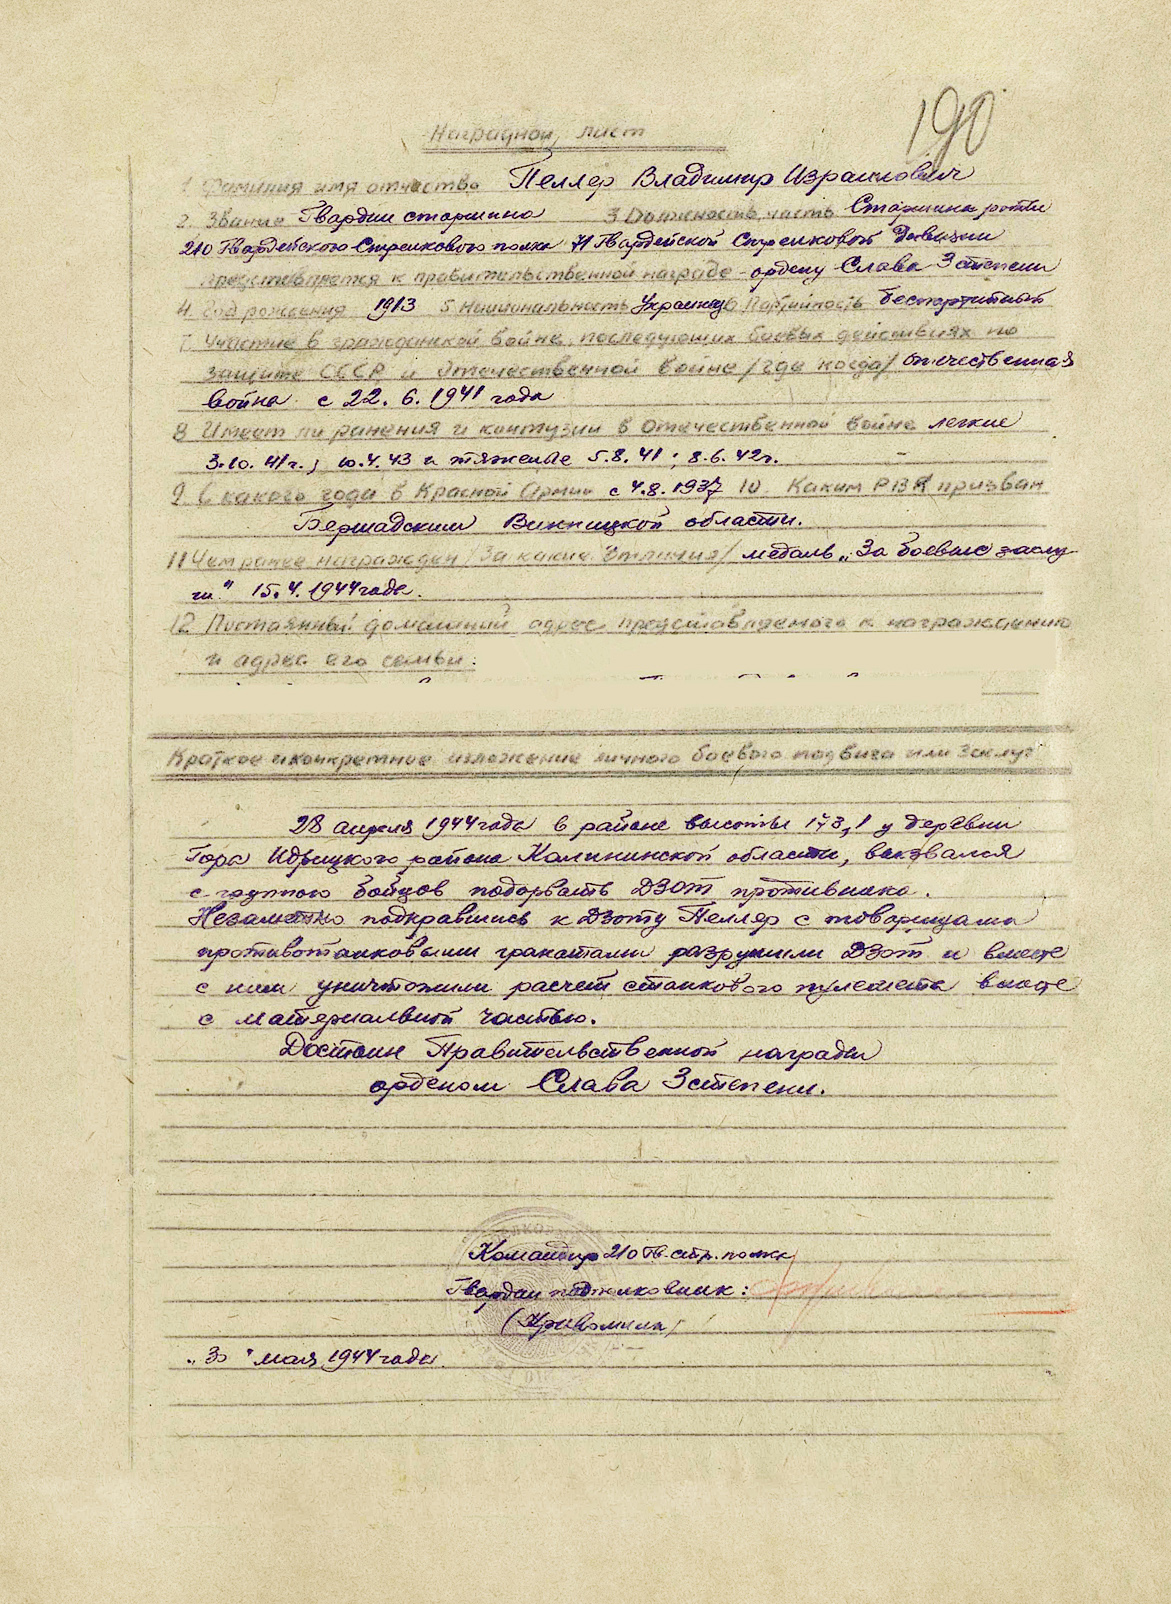 190
Наградной лист
1. Фамилия имя отчество Пеллер Владимир Израилович
2. Звание Гвардии старшина 3 Должность, часть Старшина роты
210 Гвардейского Стрелкового полка 71 Гвардейской Стрелковой Дивизии
представляется к правительственной награде - ордену Слава 3 степени
4. Год рождения 1913 5 Национальность Украинец 6 Партийность беспартийный
7. Участие в гражданской войне, последующих боевых действиях по
защите СССР и Отечественной войне /где когда/ отечественная
война с 22.6.1941 года
8 Имеет ли ранения и контузии в Отечественной войне легкие
3.10.41г.; 10.4.43 и тяжелые 5.8.41; 8.6.42г.
9. С какого года в Красной Армии с 4.8.1937 10. Каким РВК призван
Бершадским Винницкой области.
11 Чем ранее награжден /За какие отличия/ медаль „За боевые заслу
ги" 15.4.1944 года.
12 Постоянный домашний адрес представляемого к награждению
и адрес его семьи:
Краткое и конкретное изложение личного боевого подвига или заслуг
28 апреля 1944 года в районе высоты 173,1 у деревни
Гора Идрицкого района Калининской области, вызвался
с группою бойцов подорвать ДЗОТ противника.
Незаметно подкравшись к Дзоту Пеллер с товарищами
противотанковыми гранатами разрушили ДЗОТ и вместе
с ним уничтожили расчет станкового пулемета вместе
с материальной частью.
Достоин Правительственной награды
орденом Слава 3 степени.
Командир 210 гв. стр. полка
Гвардии подполковник:
„30 " мая 1944 года.